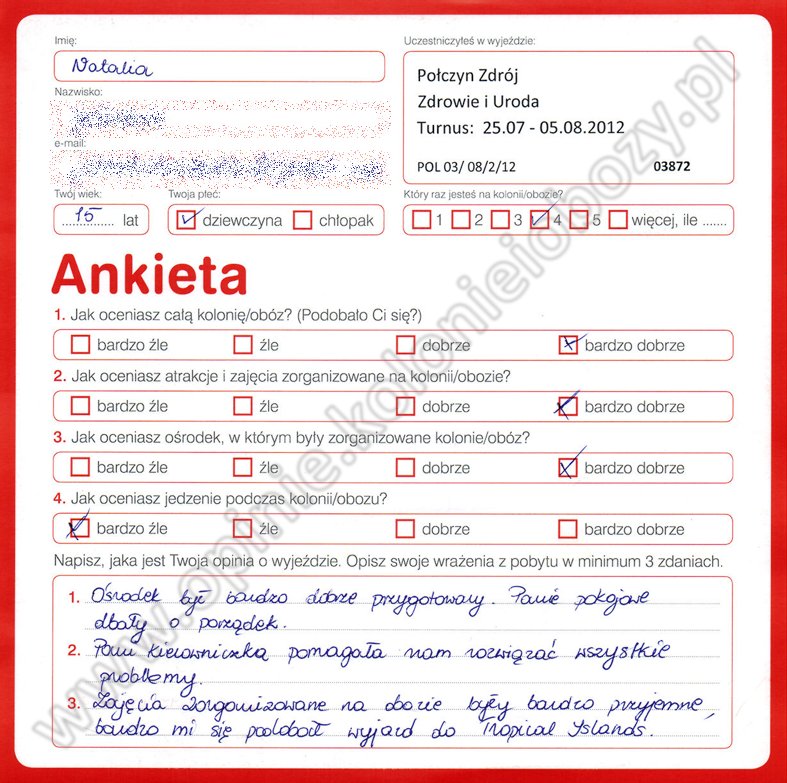 Imię:
Natalia
Nazwisko:
e-mail:
Twój wiek:
15 lat
Twoja płeć:
dziewczyna chłopak
Uczestniczyłeś w wyjeździe:
Połczyn Zdrój
Zdrowie i Uroda
Turnus: 25.07 - 05.08.2012
POL 03/ 08/2/12 03872
Który raz jesteś na kolonii/obozie?
1 2 3 4 5 więcej, ile .......
Ankieta
1. Jak oceniasz całą kolonię/obóz? (Podobało Ci się?)
bardzo źle źle dobrze bardzo dobrze
2. Jak oceniasz atrakcje i zajęcia zorganizowane na kolonii/obozie?
bardzo źle źle dobrze bardzo dobrze
3. Jak oceniasz ośrodek, w którym były zorganizowane kolonie/obóz?
bardzo źle źle dobrze bardzo dobrze
4. Jak oceniasz jedzenie podczas kolonii/obozu?
bardzo źle źle dobrze bardzo dobrze
Napisz, jaka jest Twoja opinia o wyjeździe. Opisz swoje wrażenia z pobytu w minimum 3 zdaniach.
1. Ośrodek był bardzo dobrze przygotowany. Panie pokojowe
dbały o porządek.
2. Pani kierowniczka pomagała nam rozwiązać wszystkie
problemy.
3. Zajęcia zorganizowane na obozie były bardzo przyjemne,
bardzo mi się podobał wyjazd do Tropical Islands.
www.opinie.kolonieiobozy.pl